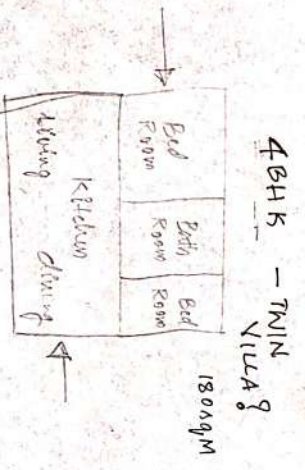 4BHK - TWIN
VILLA?
180sqM
Bed
Room
Bath
Room
Bed
Room
Kitchen
living
dining